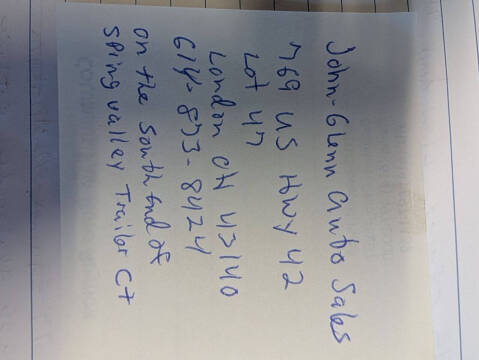 John-Glenn auto Sales
769 US Hwy 42
Lot 47
London OH 43140
614-873-8424
on the south end of
spring valley Trailer Ct